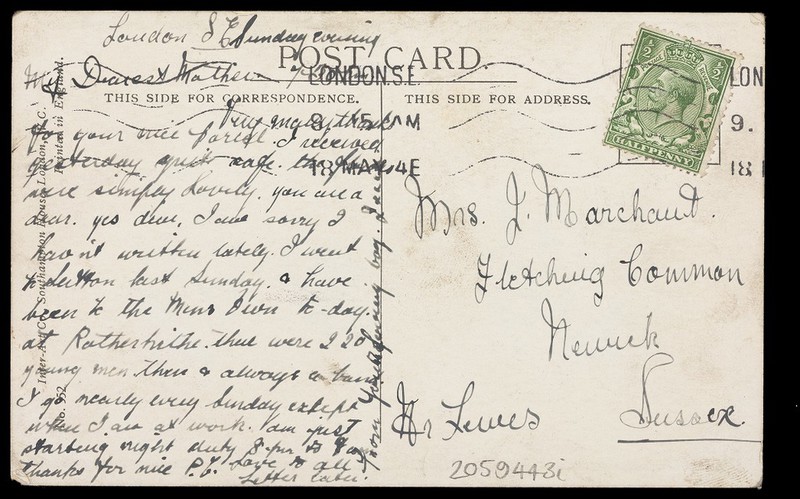 London S.E. Sunday evening
POST CARD.
My Dearest Mother
LONDON. S.E.
THIS SIDE FOR CORRESPONDENCE.
THIS SIDE FOR ADDRESS.
Very many thanks
for your nice Parcel. I received
yesterday quite safe. the
were simply Lovely. you are a
dear. yes dear, I am sorry I
hav'nt written lately. I went
to Sutton last Sunday. & have
been to the Mens Own to-day.
at Rotherhithe. there were 220
young men there & always a band
I go nearly every Sunday except
when I am at work. am just
starting night duty 8-pm to
thanks for nice P.C. Love to all
Letter later.
from your loving boy.
8.15 AM
18 MAY 14
½ ½
HALFPENNY
LON
9.
18
Mrs. J. Marchant.
Fletching Common
Newick
Nr Lewes
Sussex.
Inter-Art Co., Southampton House, London, W.C.
Printed in England.
No. 952
2059443i